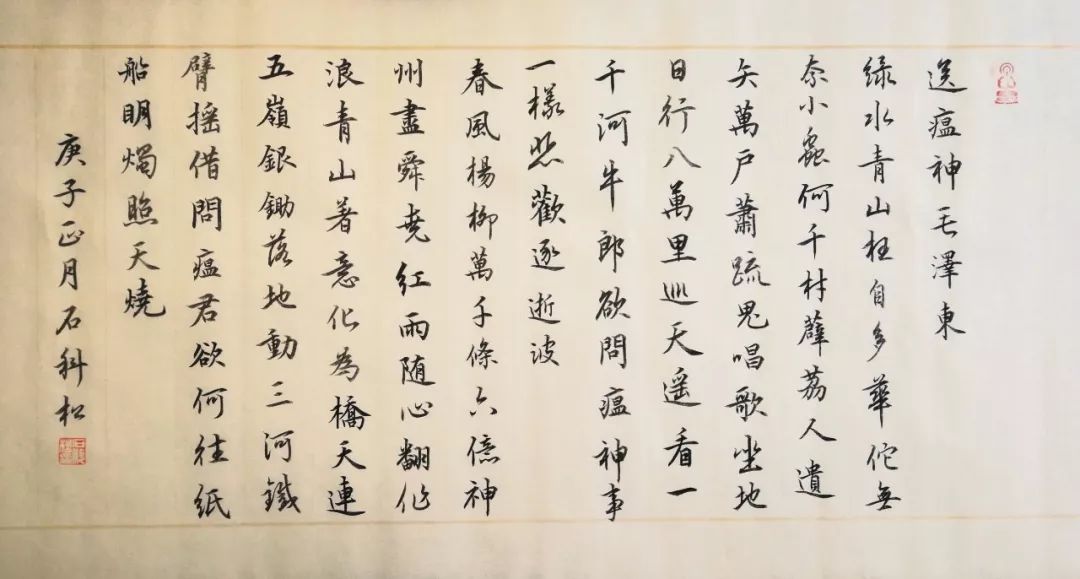 送瘟神毛澤東
绿水青山枉自多華佗無
奈小蟲何千村薜荔人遺
矢萬户蕭疏鬼唱歌坐地
日行八萬里巡天遥看一
千河牛郎欲問瘟神事
一樣悲歡逐逝波
春風楊柳萬千條六億神
州盡舜堯红雨随心翻作
浪青山著意化為橋天連
五嶺銀鋤落地動三河鐵
臂摇借問瘟君欲何往纸
船明燭照天燒
庚子正月石科松